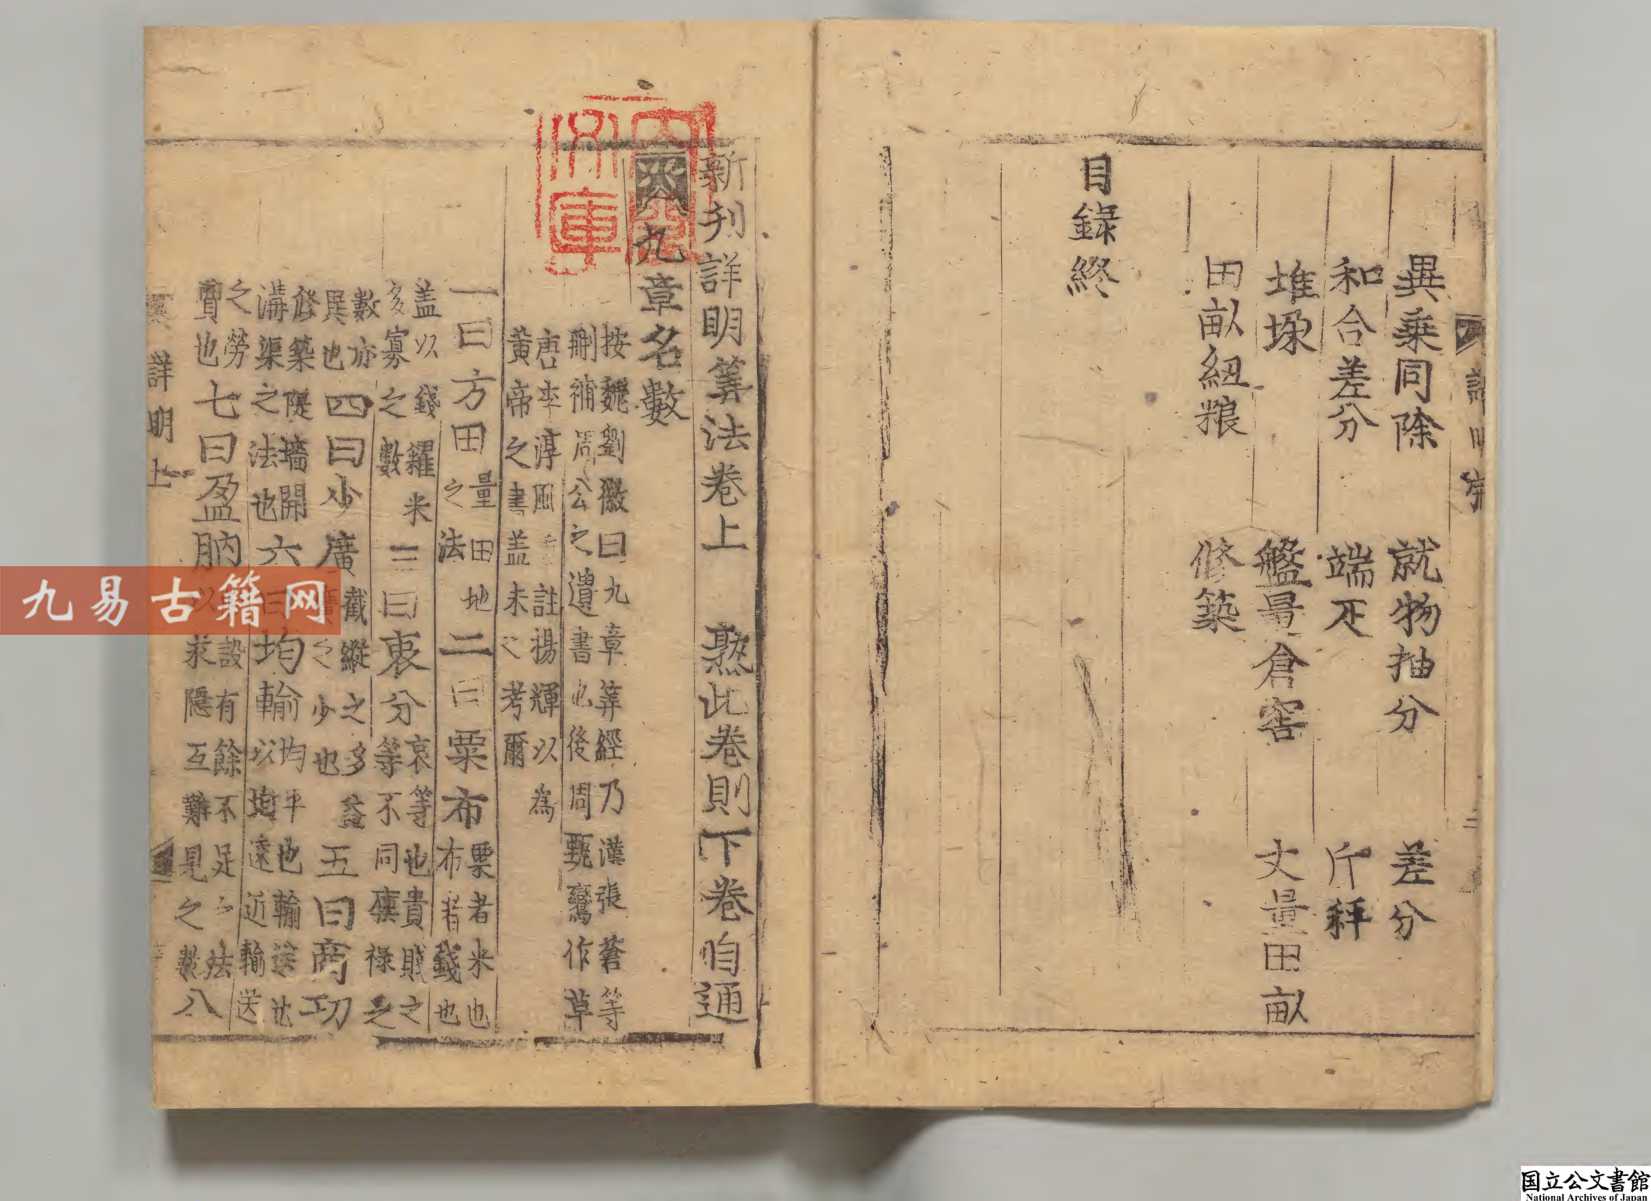 異乗同除　就物抽分　差分
和合差分　端疋　斤秤
堆垜　盤量倉窖　丈量田畝
田畝紐粮　修築
目録終
新刋詳明筭法卷上　熟此卷則下卷自通
九章名數
按魏劉徽曰九章筭經乃漢張蒼等
刪補周公之遺書也後周甄鸞作草
唐李淳風註揚輝以為
黄帝之書盖未之考爾
一曰方田量田地之法二曰粟布粟者米也布者錢也
盖以錢糴米多寡之數三曰衰分衰等也貴賤之等不同廩禄之
數亦異也四曰少廣截縱之多益廣之少也五曰商功
修築隄墻開溝渠之法也六曰均輸均平也輸送也以均遠近輸送
之勞費也七曰盈朒設有餘不足之法以求隠互難見之數八
詳明上
九易古籍网
国立公文書館
National Archives of Japan